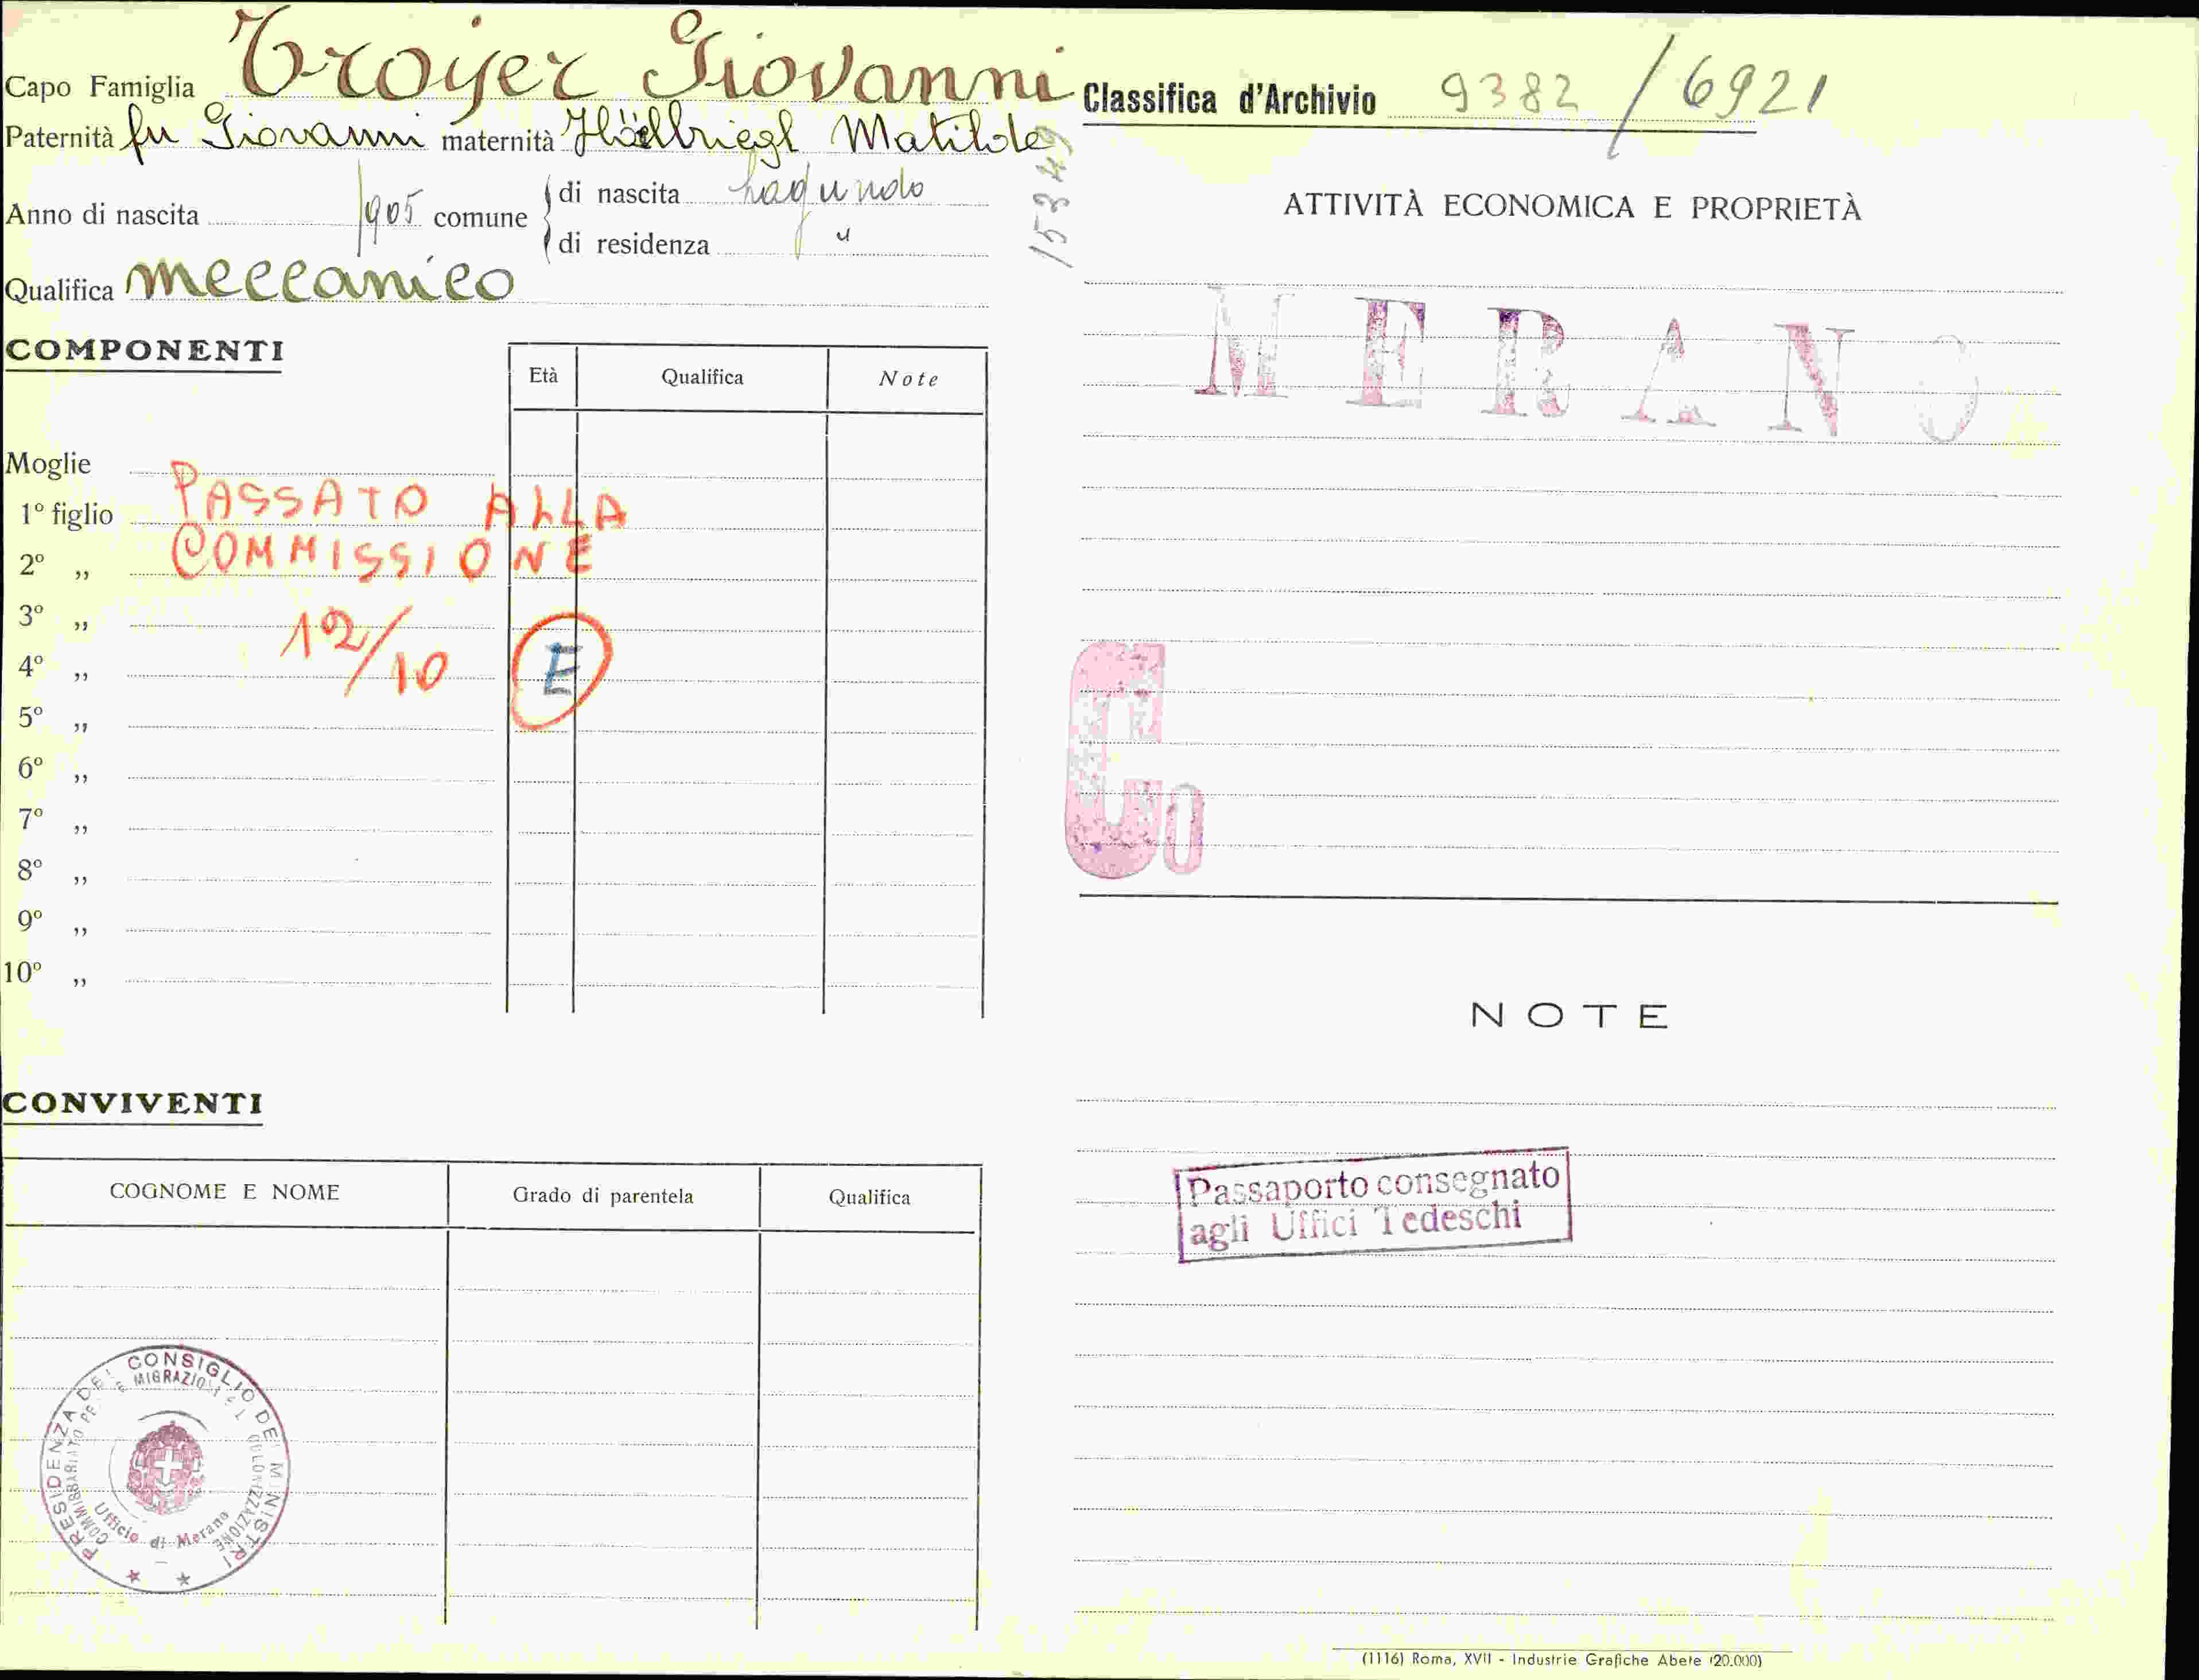 Capo Famiglia Troyer Giovanni
Paternità fu Giovanni maternità Matilde
Anno di nascita 1905 comune di nascita Lagundo
di residenza "
Qualifica meccanico
COMPONENTI
Età Qualifica Note
Moglie
1° figlio
PASSATO ALLA
2° „
COMMISSIONE
3° „
12/10
4° „
E
5° „
6° „
7° „
8° „
9° „
10° „
CONVIVENTI
COGNOME E NOME Grado di parentela Qualifica
PRESIDENZA DEL CONSIGLIO DEI MINISTRI
COMMISSARIATO PER LE MIGRAZIONI E LA COLONIZZAZIONE
Ufficio di Merano
Classifica d'Archivio 9382/6921
15349
ATTIVITÀ ECONOMICA E PROPRIETÀ
MERANO
C0
NOTE
Passaporto consegnato
agli Uffici Tedeschi
(1116) Roma, XVII - Industrie Grafiche Abete (20.000)